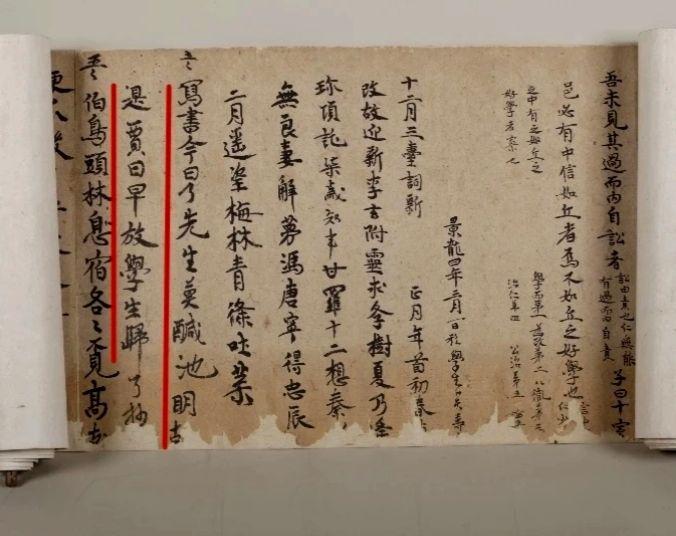 吾未見其過而內自訟者 訟由責也仁 有過而自責 子曰十室
邑必有中信如丘者焉不如丘之好學也
之中有之如丘之
好學者 也
學而第一 為政第二 八佾第三
治仁第四 公冶第五
景龍四年三月一日於學生卜天壽
十二月三臺詞新 正月年首初春
改故迎新李玄附靈求學樹夏乃逢
珎項託柒歲知事甘羅十二想秦
無良妻解夢馮唐寧得忠辰
二月遥望梅林青條吐葉
寫書今日了先生莫醎池明
是賈日早放學生歸 了抄
伯鳥頭林息宿各々覓高